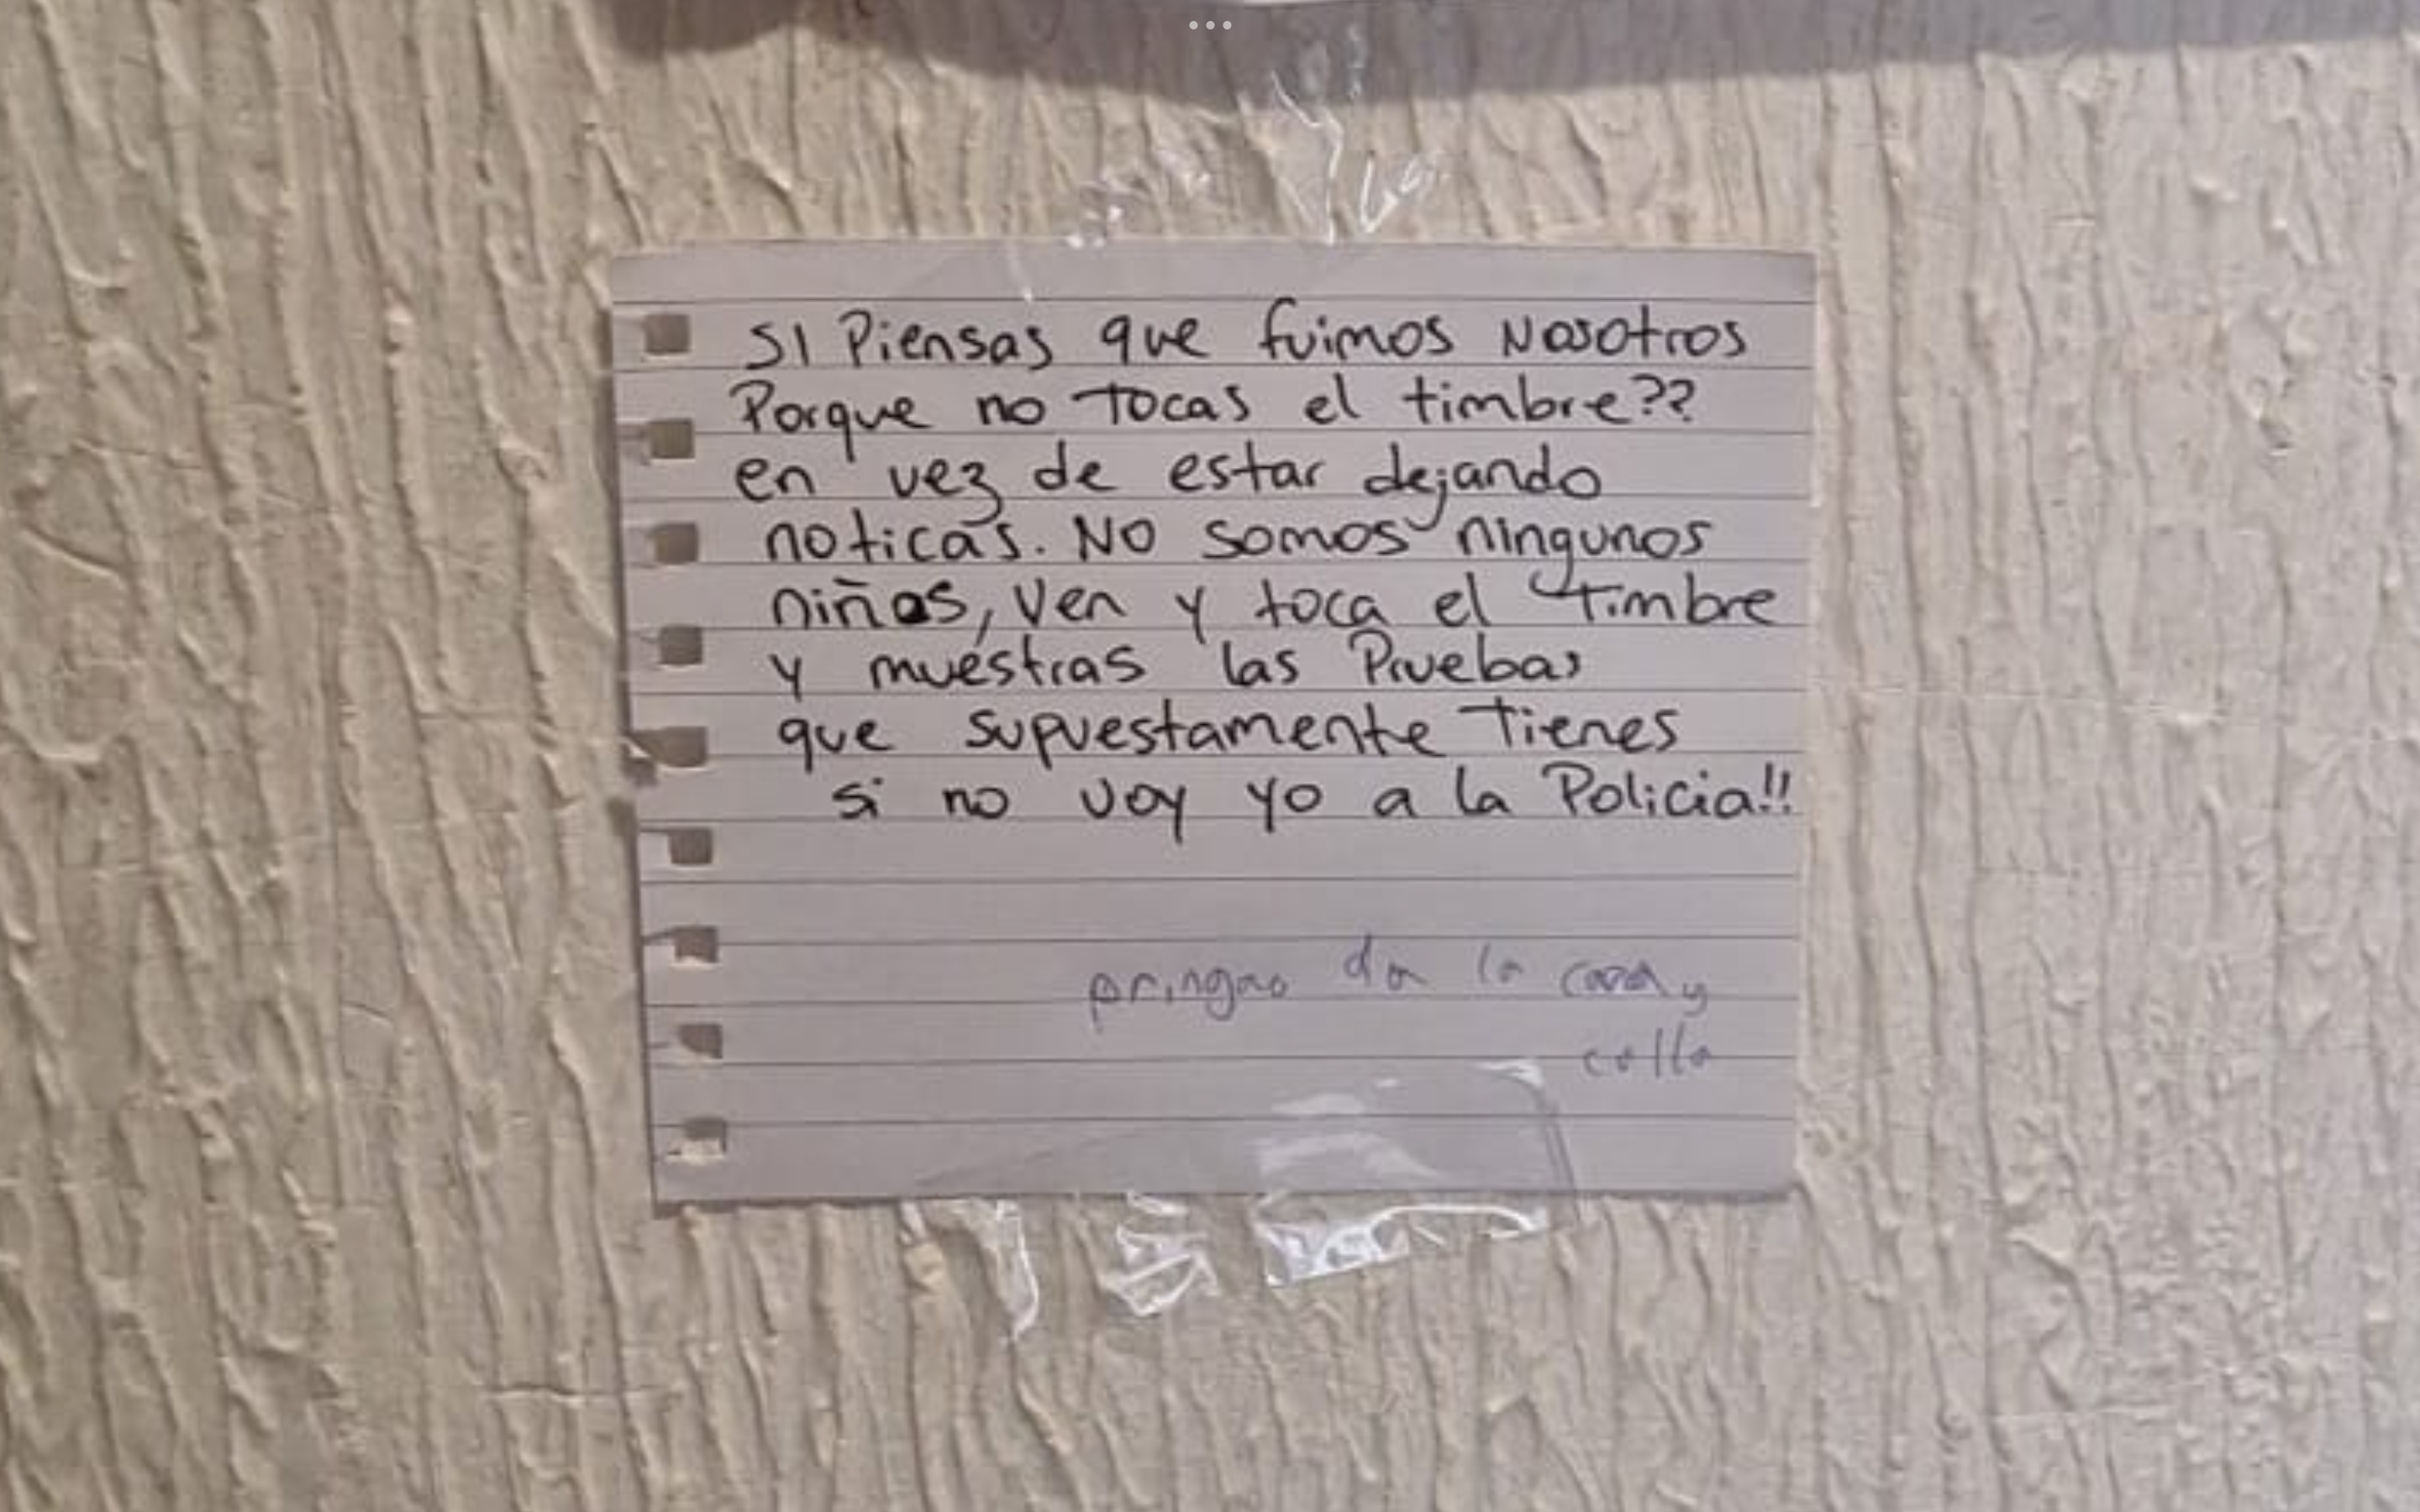 SI Piensas que fuimos Nosotros
Porque no Tocas el timbre??
en vez de estar dejando
noticas. NO somos ningunos
niños, Ven y toca el Timbre
y muestras las Pruebas
que supuestamente Tienes
si no voy yo a la Policia!!
pringao da la cara y
calla